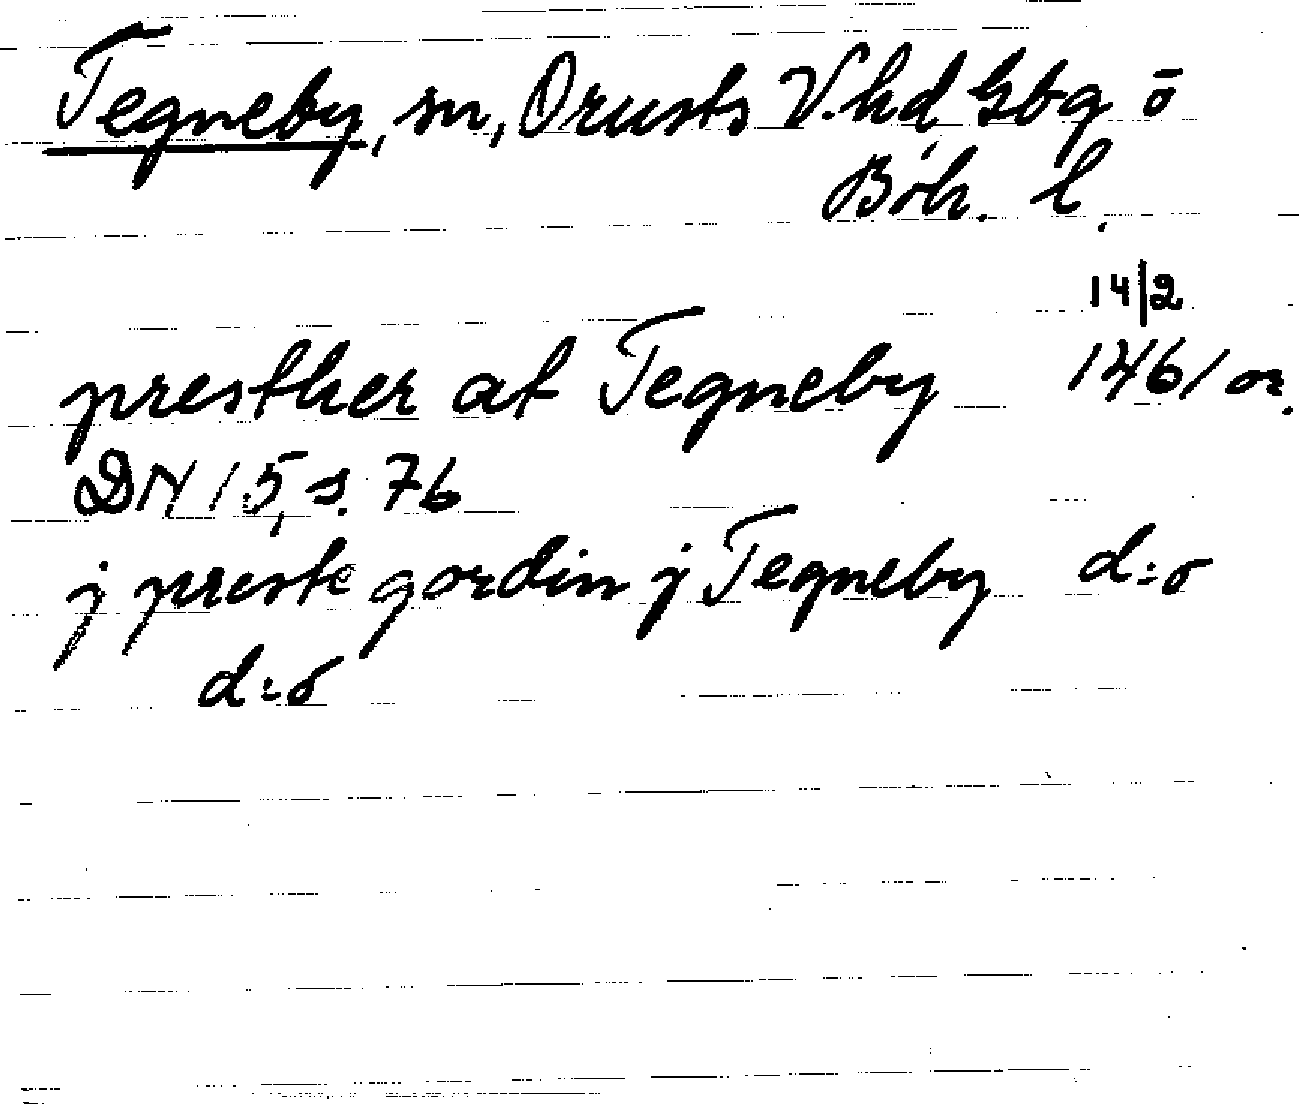 Tegneby, sn, Orusts V. hd Gbg o
Boh. l.
14/2
presther at Tegneby 1461 or.
DN 15, s. 76
j prestegordin j Tegneby d:o
d:o